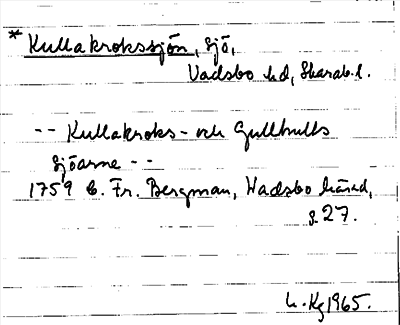 * Kullakrokssjön, sjö,
Vadsbo hd, Skarab. l.
-- Kullakroks- och Gullhults
Sjöarne --
1759 C. Fr. Bergman, Wadsbo härad,
s. 27.
L. Kg 1965.